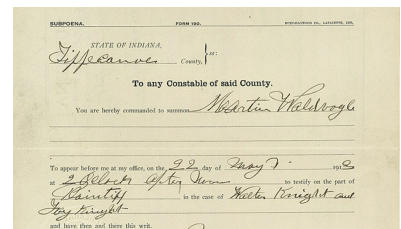 SUBPOENA. FORM 190.
STATE OF INDIANA,
Tippecanoe County, } ss:
To any Constable of said County.
You are hereby commanded to summon Martin Waldvogle
To appear before me at my office, on the 22 day of May 191
at 2 O'Clock after noon to testify on the part of
Plaintiff in the case of Walter Knight and
Knight
and have then and there this writ.